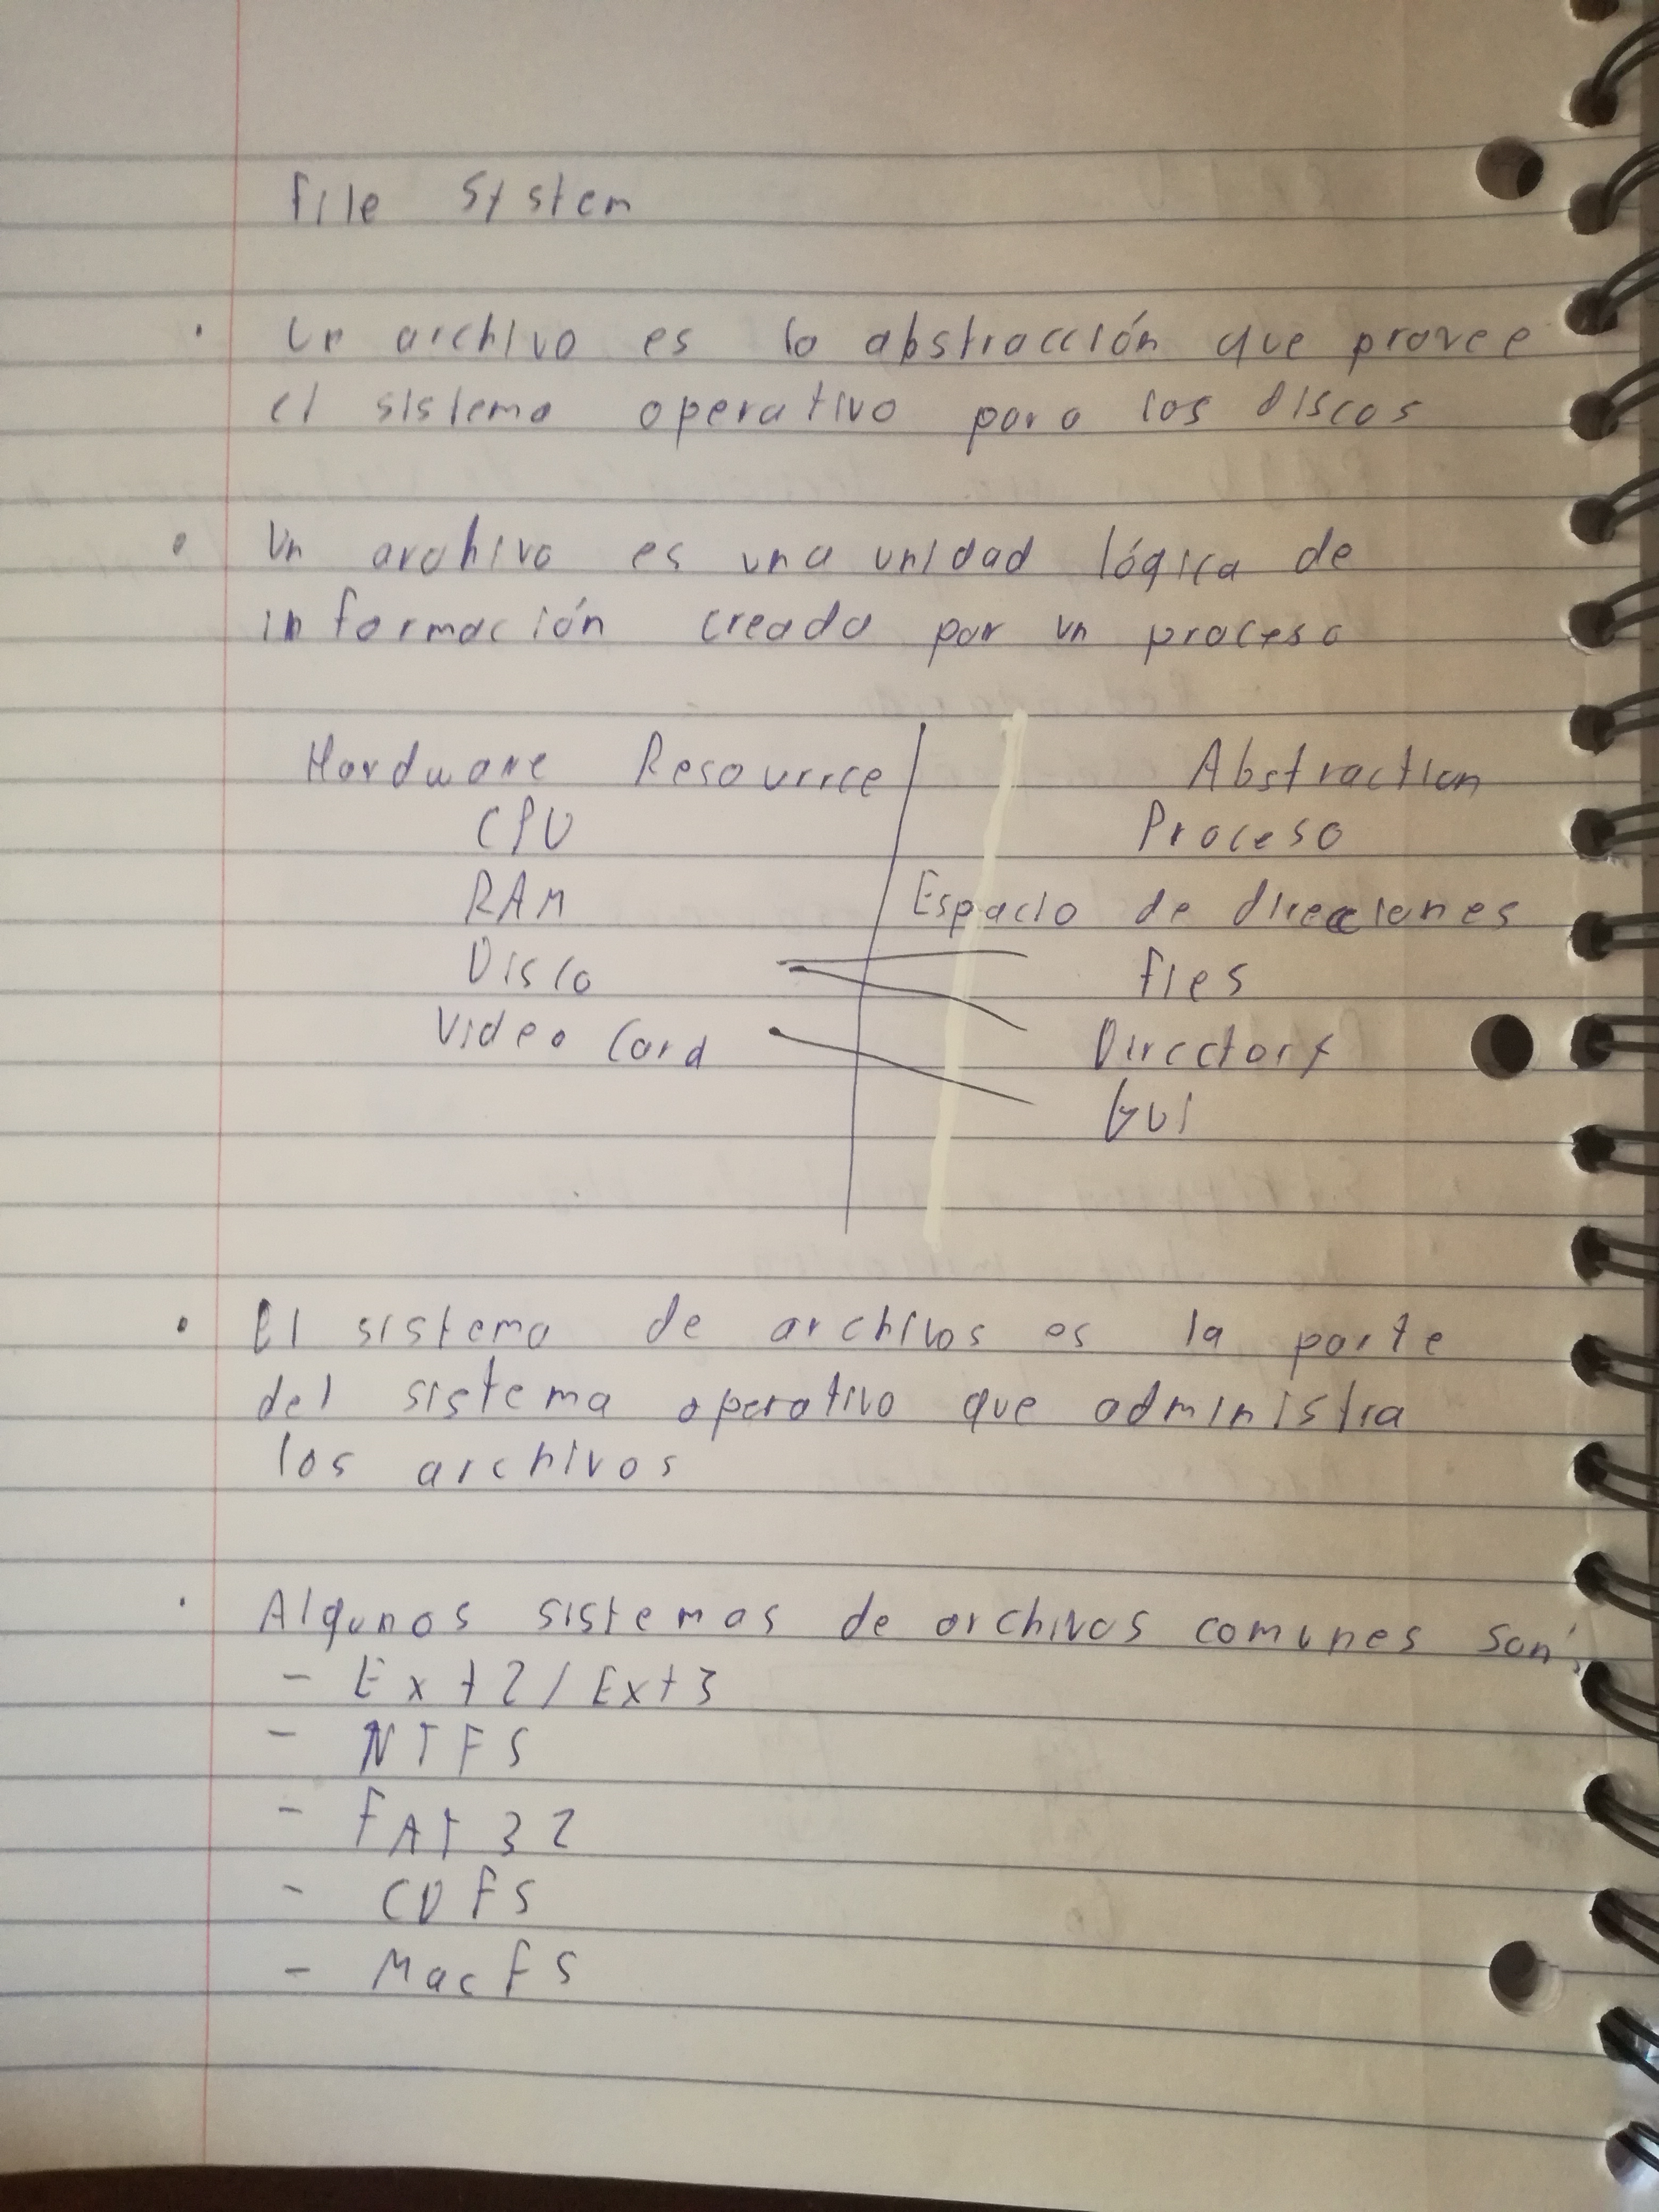 File System
• Un archivo es la abstracción que provee
el sistema operativo para los discos
• Un archivo es una unidad lógica de
información creada por un proceso
Hardware Resourrce Abstraction
CPU Proceso
RAM Espacio de direcciones
Disco Fies
Video Card Directory
GUI
• El sistema de archivos es la parte
del sistema operativo que administra
los archivos
• Algunos sistemas de archivos comunes son:
- Ext2/Ext3
- NTFS
- FAT32
- CDFS
- MacFS